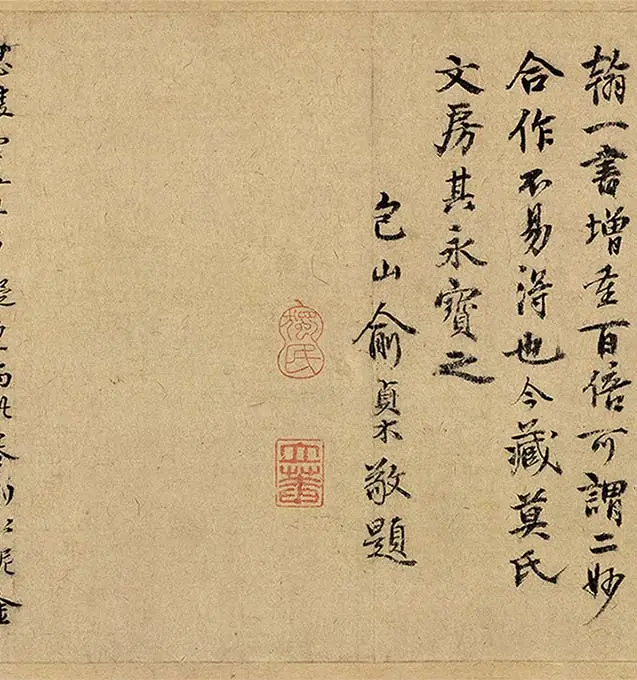 翰一書增重百倍可謂二妙
合作不易得也今藏莫氏
文房其永寶之
包山俞貞木敬題